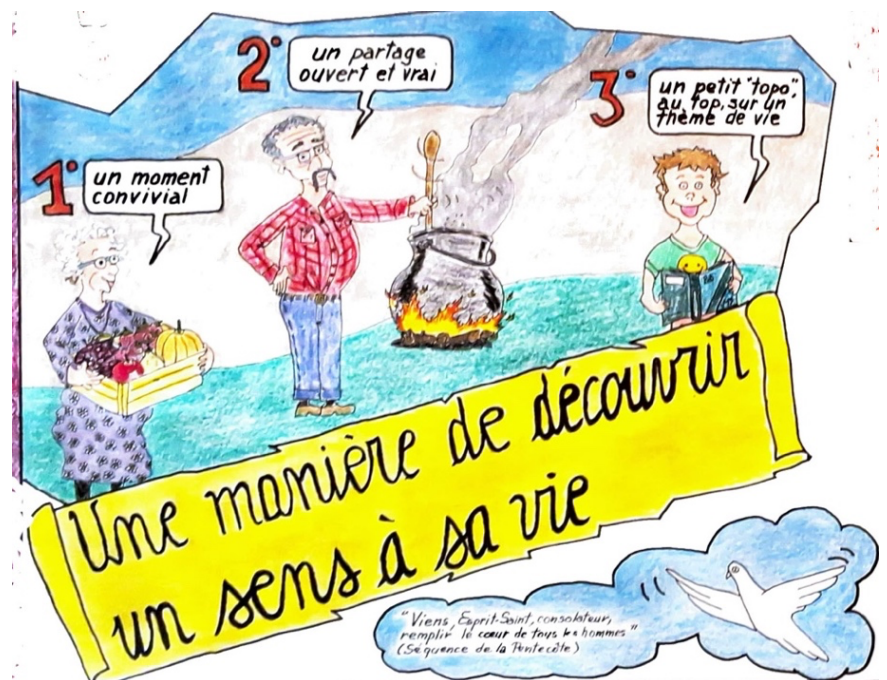 1°
un moment
convivial
2°
un partage
ouvert et vrai
3°
un petit "topo",
au top, sur un
thème de vie
Une manière de découvrir
un sens à sa vie
"Viens, Esprit-Saint, consolateur,
remplir le cœur de tous les hommes"
(Séquence de la Pentecôte)